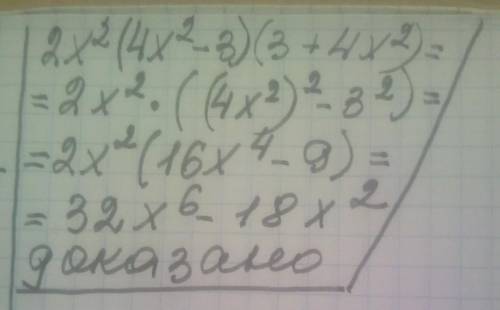 2x²(4x²-3)(3+4x²)=
=2x²·((4x²)²-3²)=
=2x²(16x⁴-9)=
=32x⁶-18x²
доказано